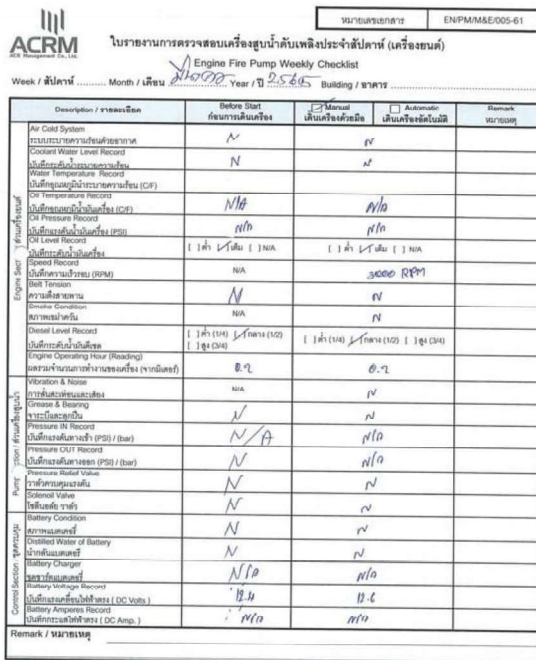 หมายเลขเอกสาร EN/PM/M&E/005-61
ACRM
ใบรายงานการตรวจสอบเครื่องสูบน้ำดับเพลิงประจำสัปดาห์ (เครื่องยนต์)
Engine Fire Pump Weekly Checklist
Week / สัปดาห์ .......... Month / เดือน มีนาคม Year / ปี 2565 Building / อาคาร
Description / รายละเอียด Before Start Manual Automatic Remark
ก่อนการเดินเครื่อง เดินเครื่องด้วยมือ เดินเครื่องอัตโนมัติ หมายเหตุ
Air Cold System
ระบบระบายความร้อนด้วยอากาศ N N
Coolant Water Level Record
บันทึกระดับน้ำระบายความร้อน N N
Water Temperature Record
บันทึกอุณหภูมิน้ำระบายความร้อน (C/F)
Oil Temperature Record
บันทึกอุณหภูมิน้ำมันเครื่อง (C/F) N/A N/A
Oil Pressure Record
บันทึกแรงดันน้ำมันเครื่อง (PSI) N/A N/A
Oil Level Record
บันทึกระดับน้ำมันเครื่อง [ ] ต่ำ [✓] เต็ม [ ] N/A [ ] ต่ำ [✓] เต็ม [ ] N/A
Speed Record
บันทึกความเร็วรอบ (RPM) N/A 3000 RPM
Belt Tension
ความตึงสายพาน N N
Smoke Condition
สภาพเขม่าควัน N/A N
Diesel Level Record
บันทึกระดับน้ำมันดีเซล [ ] ต่ำ (1/4) [✓] กลาง (1/2) [ ] สูง (3/4) [ ] ต่ำ (1/4) [✓] กลาง (1/2) [ ] สูง (3/4)
Engine Operating Hour (Reading)
ผลรวมจำนวนการทำงานของเครื่อง (จากมิเตอร์)
Vibration & Noise
การสั่นสะเทือนและเสียง N/A N
Grease & Bearing
จาระบีและลูกปืน N N
Pressure IN Record
บันทึกแรงดันทางเข้า (PSI) / (bar) N/A N/A
Pressure OUT Record
บันทึกแรงดันทางออก (PSI) / (bar) N N/A
Pressure Relief Valve
วาล์วควบคุมแรงดัน N N
Solenoil Valve
โซลินอยล์ วาล์ว N N
Battery Condition
สภาพแบตเตอรี่ N N
Distilled Water of Battery
น้ำกลั่นแบตเตอรี่ N N
Battery Charger
ชุดชาร์ตแบตเตอรี่ N/A N/A
Battery Voltage Record
บันทึกแรงเคลื่อนไฟฟ้าตรง ( DC Volts ) 12.4 12.6
Battery Amperes Record
บันทึกกระแสไฟฟ้าตรง ( DC Amp. ) N/A N/A
Remark / หมายเหตุ